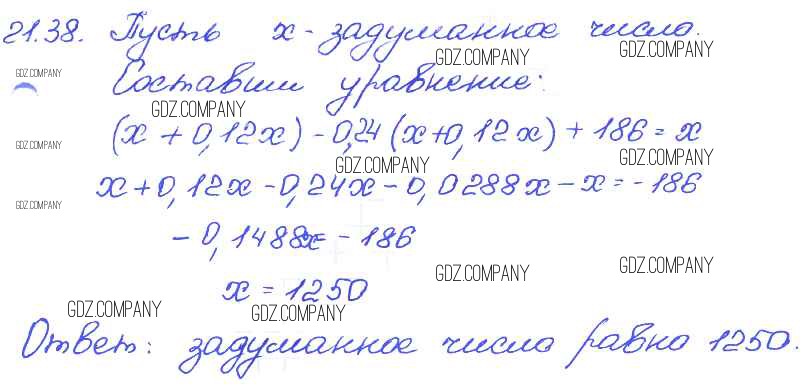 21.38. Пусть x - задуманное число.
GDZ.COMPANY GDZ.COMPANY
GDZ.COMPANY
Составим уравнение:
GDZ.COMPANY
(x + 0,12x) - 0,24 (x+0,12x) + 186 = x
GDZ.COMPANY
GDZ.COMPANY GDZ.COMPANY
x + 0,12x - 0,24x - 0,0288x - x = - 186
GDZ.COMPANY
- 0,1488x = - 186
GDZ.COMPANY GDZ.COMPANY
x = 1250
GDZ.COMPANY GDZ.COMPANY
Ответ: задуманное число равно 1250.